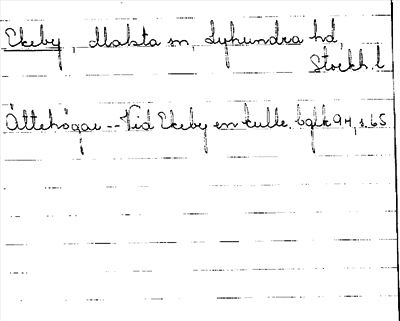 Ekeby, Malsta sn, Lyhundra hd,
Stockh. l
Ättehögar -- Vid Ekeby en kulle. bglk 94, s. 65